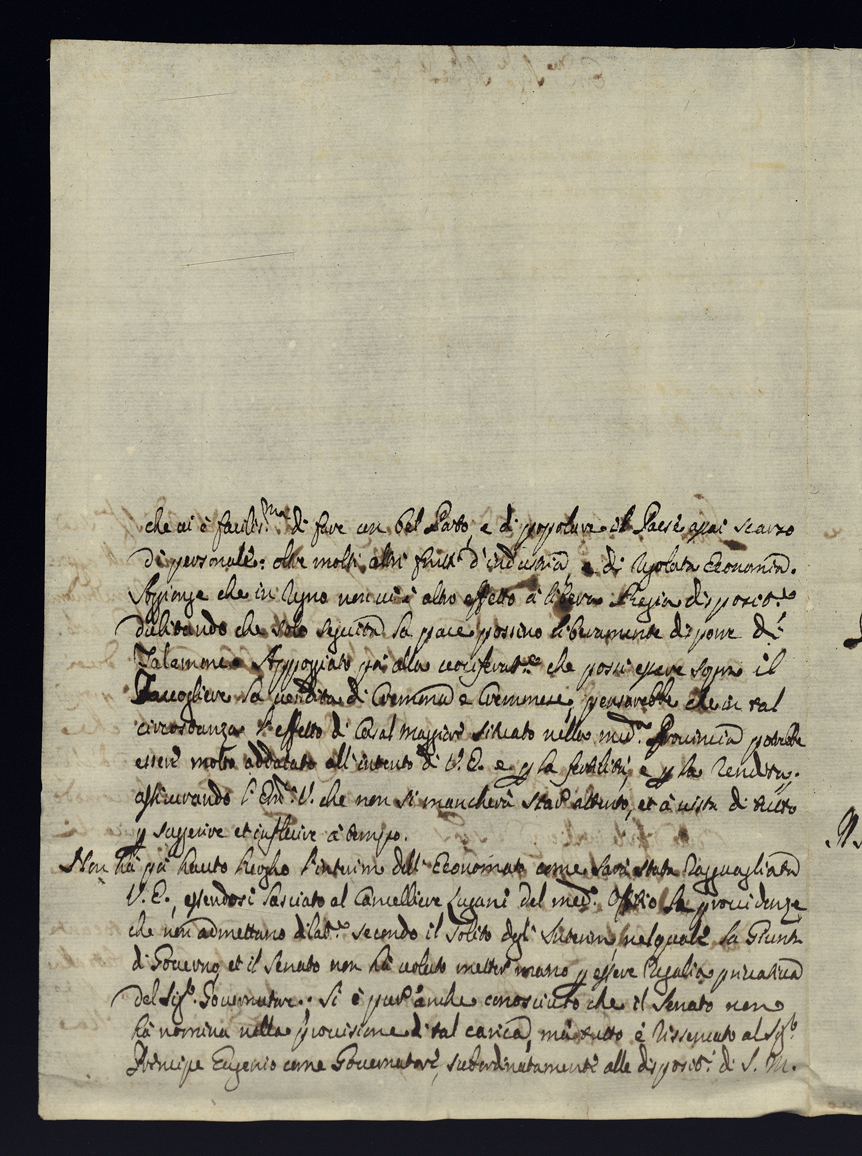 che vi è facilis.ma di fare un bel Parto, e di popolare il Paese assai scarzo
di personale: oltre molti altri frutti d'industria, e di regolata Economia.
Aggionge che in Regno non vi è altro effetto à libera Regia disposit.e
dubitando che solo seguita la pace possino liberamente dispore di
Talamone. Appoggiato poi alla che possi essere sopra il
la vendita di Cremma e Cremmese, pensarebbe che in tal
circostanza l'effetto di Casal maggiore situato nella med.a Provincia potrebbe
essere molto addatato all'intento di V. E. e p la fertilità, e p la rendita.
assicurando l'Em.a V. che non si mancherà star attento, et à vista di tutto
p suggerire et influire à tempo.
Non hà poi hauto luogho l'interim dell'Economato come sarà stata ragguagliata
V. E., essendosi lasciato al Cancelliere Lugani del med.o Offitio le providenze
che non admettano dilat.e secondo il solito degl'Interim, nel quale la Giunta
di Governo, et il Senato non hà voluto metter mano p essere Regalia privativa
del Sig.r Governatore. Si è pur anche conosciuto che il Senato non
hà nomina nella provisione di tal carica, mà tutto è rissservato al Sig.r
Principe Eugenio come Governatore, subordinatamente alle disposit.i di S. M.